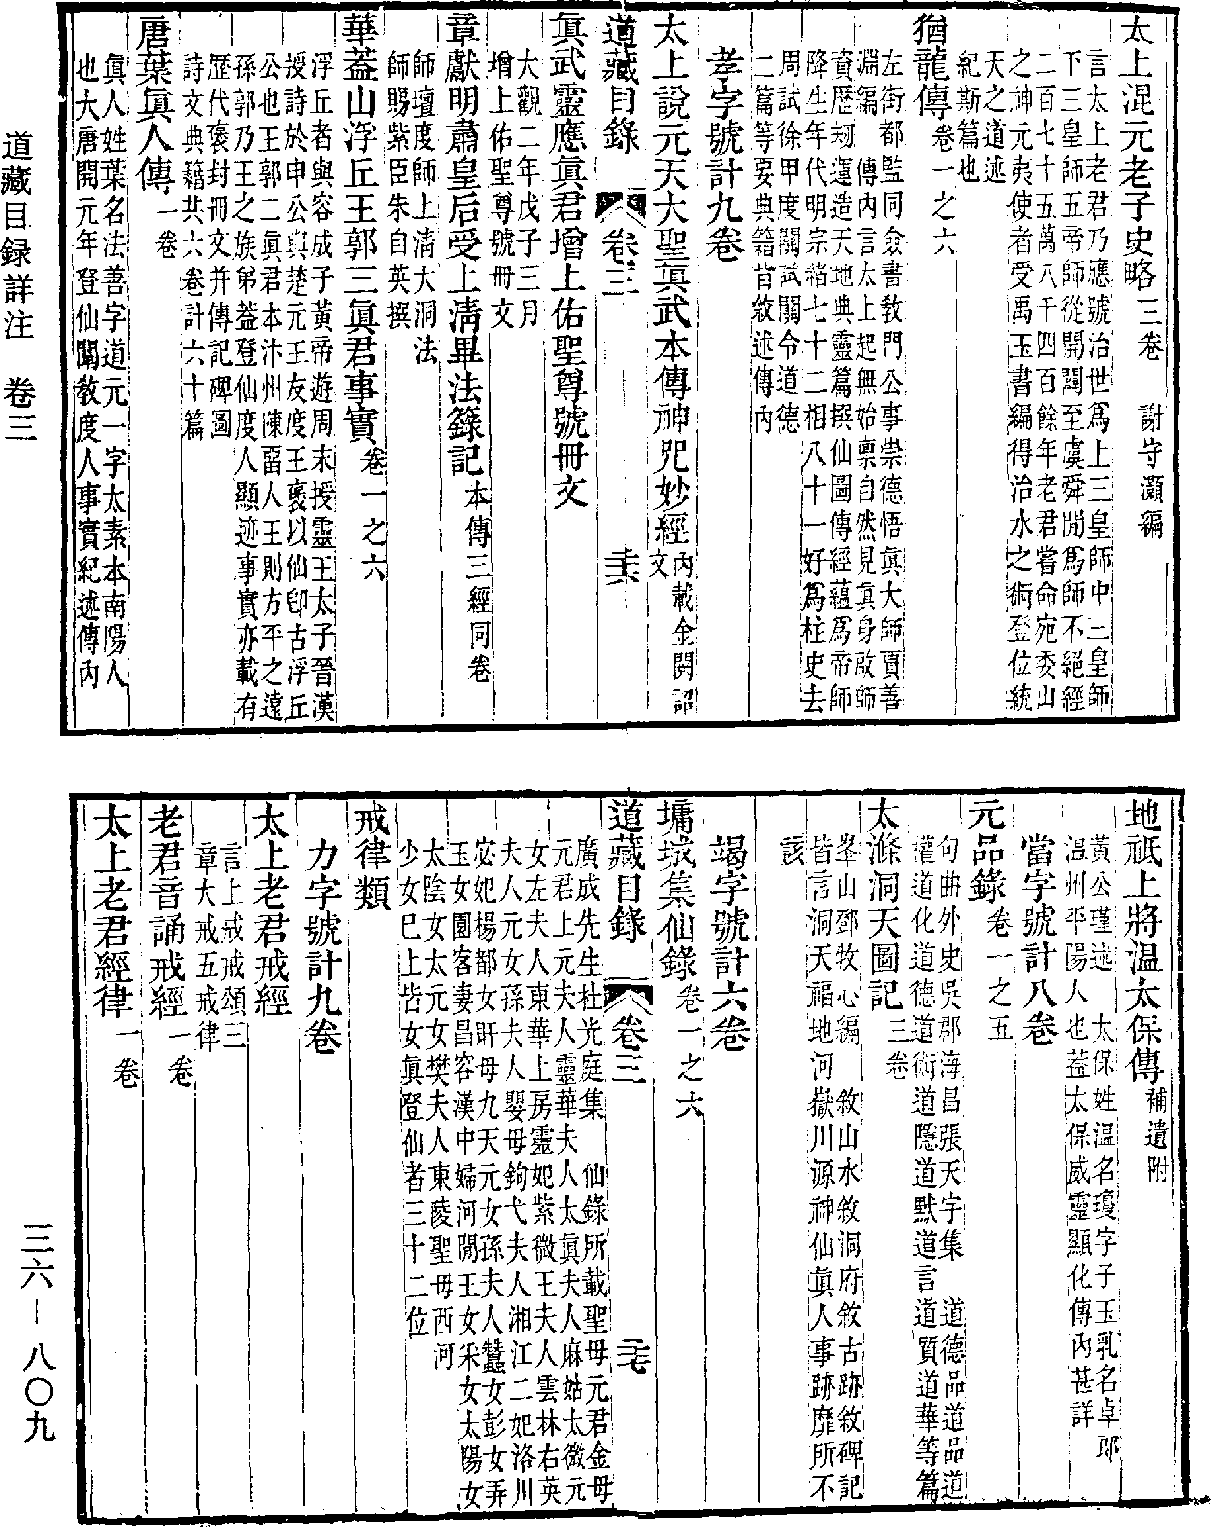 太上混元老子史略三卷　謝守灝編
言太上老君乃應號治世爲上三皇師中三皇師
下三皇師五帝師從開闢至虞舜閒爲師不絕經
二百七十五萬八千四百餘年老君嘗命宛委山
之神元夷使者受禹玉書編得治水之術登位統
天之道述
紀斯篇也
猶龍傳卷一之六
左街都監同僉書教門公事崇德悟眞大師賈善
淵編　傳內言太上起無始禀自然見眞身啟師
資歷刼運造天地典靈篇撰仙圖傳經蘊爲帝師
降生年代明宗緒七十二相八十一好爲柱史去
周試徐甲度關試關令道德
二篇等要典籍皆敘述傳內
孝字號計九卷
太上說元天大聖眞武本傳神咒妙經內載金闕詔
文
道藏目錄　卷三　二十六
眞武靈應眞君增上佑聖尊號冊文
大觀二年戊子三月
增上佑聖尊號冊文
章獻明肅皇后受上淸畢法籙記本傳三經同卷
師壇度師上淸大洞法
師賜紫臣朱自英撰
華葢山浮丘王郭三眞君事實卷一之六
浮丘者與容成子黃帝遊周末授靈王太子晉漢
授詩於申公與楚元王友度王褒以仙印古浮丘
公也王郭二眞君本汴州陳留人王則方平之遠
孫郭乃王之族弟葢登仙度人顯迹事實亦載有
歷代褒封冊文并傳記碑圖
詩文典籍共六卷計六十篇
唐葉眞人傳一卷
眞人姓葉名法善字道元一字太素本南陽人
也大唐開元年登仙闡教度人事實紀述傳內
道藏目錄詳注　卷三
地祇上將溫太保傳補遺附
黃公瑾述　太保姓溫名瓊字子玉乳名卓郎
溫州平陽人也葢太保威靈顯化傳內甚詳
當字號計八卷
元品錄卷一之五
句曲外史吳郡海昌張天宇集　道德品道品道
權道化道德道術道隱道默道言道質道華等篇
太滌洞天圖記三卷
峯山鄧牧心編　敘山水敘洞府敘古跡敘碑記
皆言洞天福地河嶽川源神仙眞人事跡靡所不
該
竭字號計六卷
墉城集仙錄卷一之六
道藏目錄　卷三　二十七
廣成先生杜光庭集　仙錄所載聖母元君金母
元君上元夫人靈華夫人太眞夫人麻姑太微元
女左夫人東華上房靈妃紫微王夫人雲林右英
夫人元女孫夫人嬰母鉤弋夫人湘江二妃洛川
宓妃楊都女盱母九天元女孫夫人蠶女彭女弄
玉女園客妻昌容漢中婦河閒王女采女太陽女
太陰女太元女樊夫人東陵聖母西河
少女巳上皆女眞登仙者三十二位
戒律類
力字號計九卷
太上老君戒經
言上戒戒頌三
章大戒五戒律
老君音誦戒經一卷
太上老君經律一卷
三六－八〇九